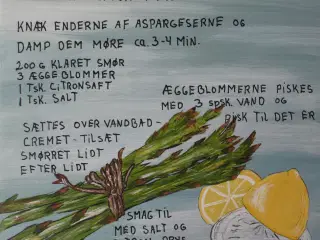 KNÆK ENDERNE AF ASPARGESERNE OG
DAMP DEM MØRE ca. 3-4 MIN.
200 G KLARET SMØR
3 ÆGGEBLOMMER
1 TSK. CITRONSAFT
1 TSK. SALT
ÆGGEBLOMMERNE PISKES
MED 3 SPSK. VAND OG
PISK TIL DET ER
SÆTTES OVER VANDBAD-
CREMET - TILSÆT
SMØRRET LIDT
EFTER LIDT
SMAG TIL
MED SALT OG